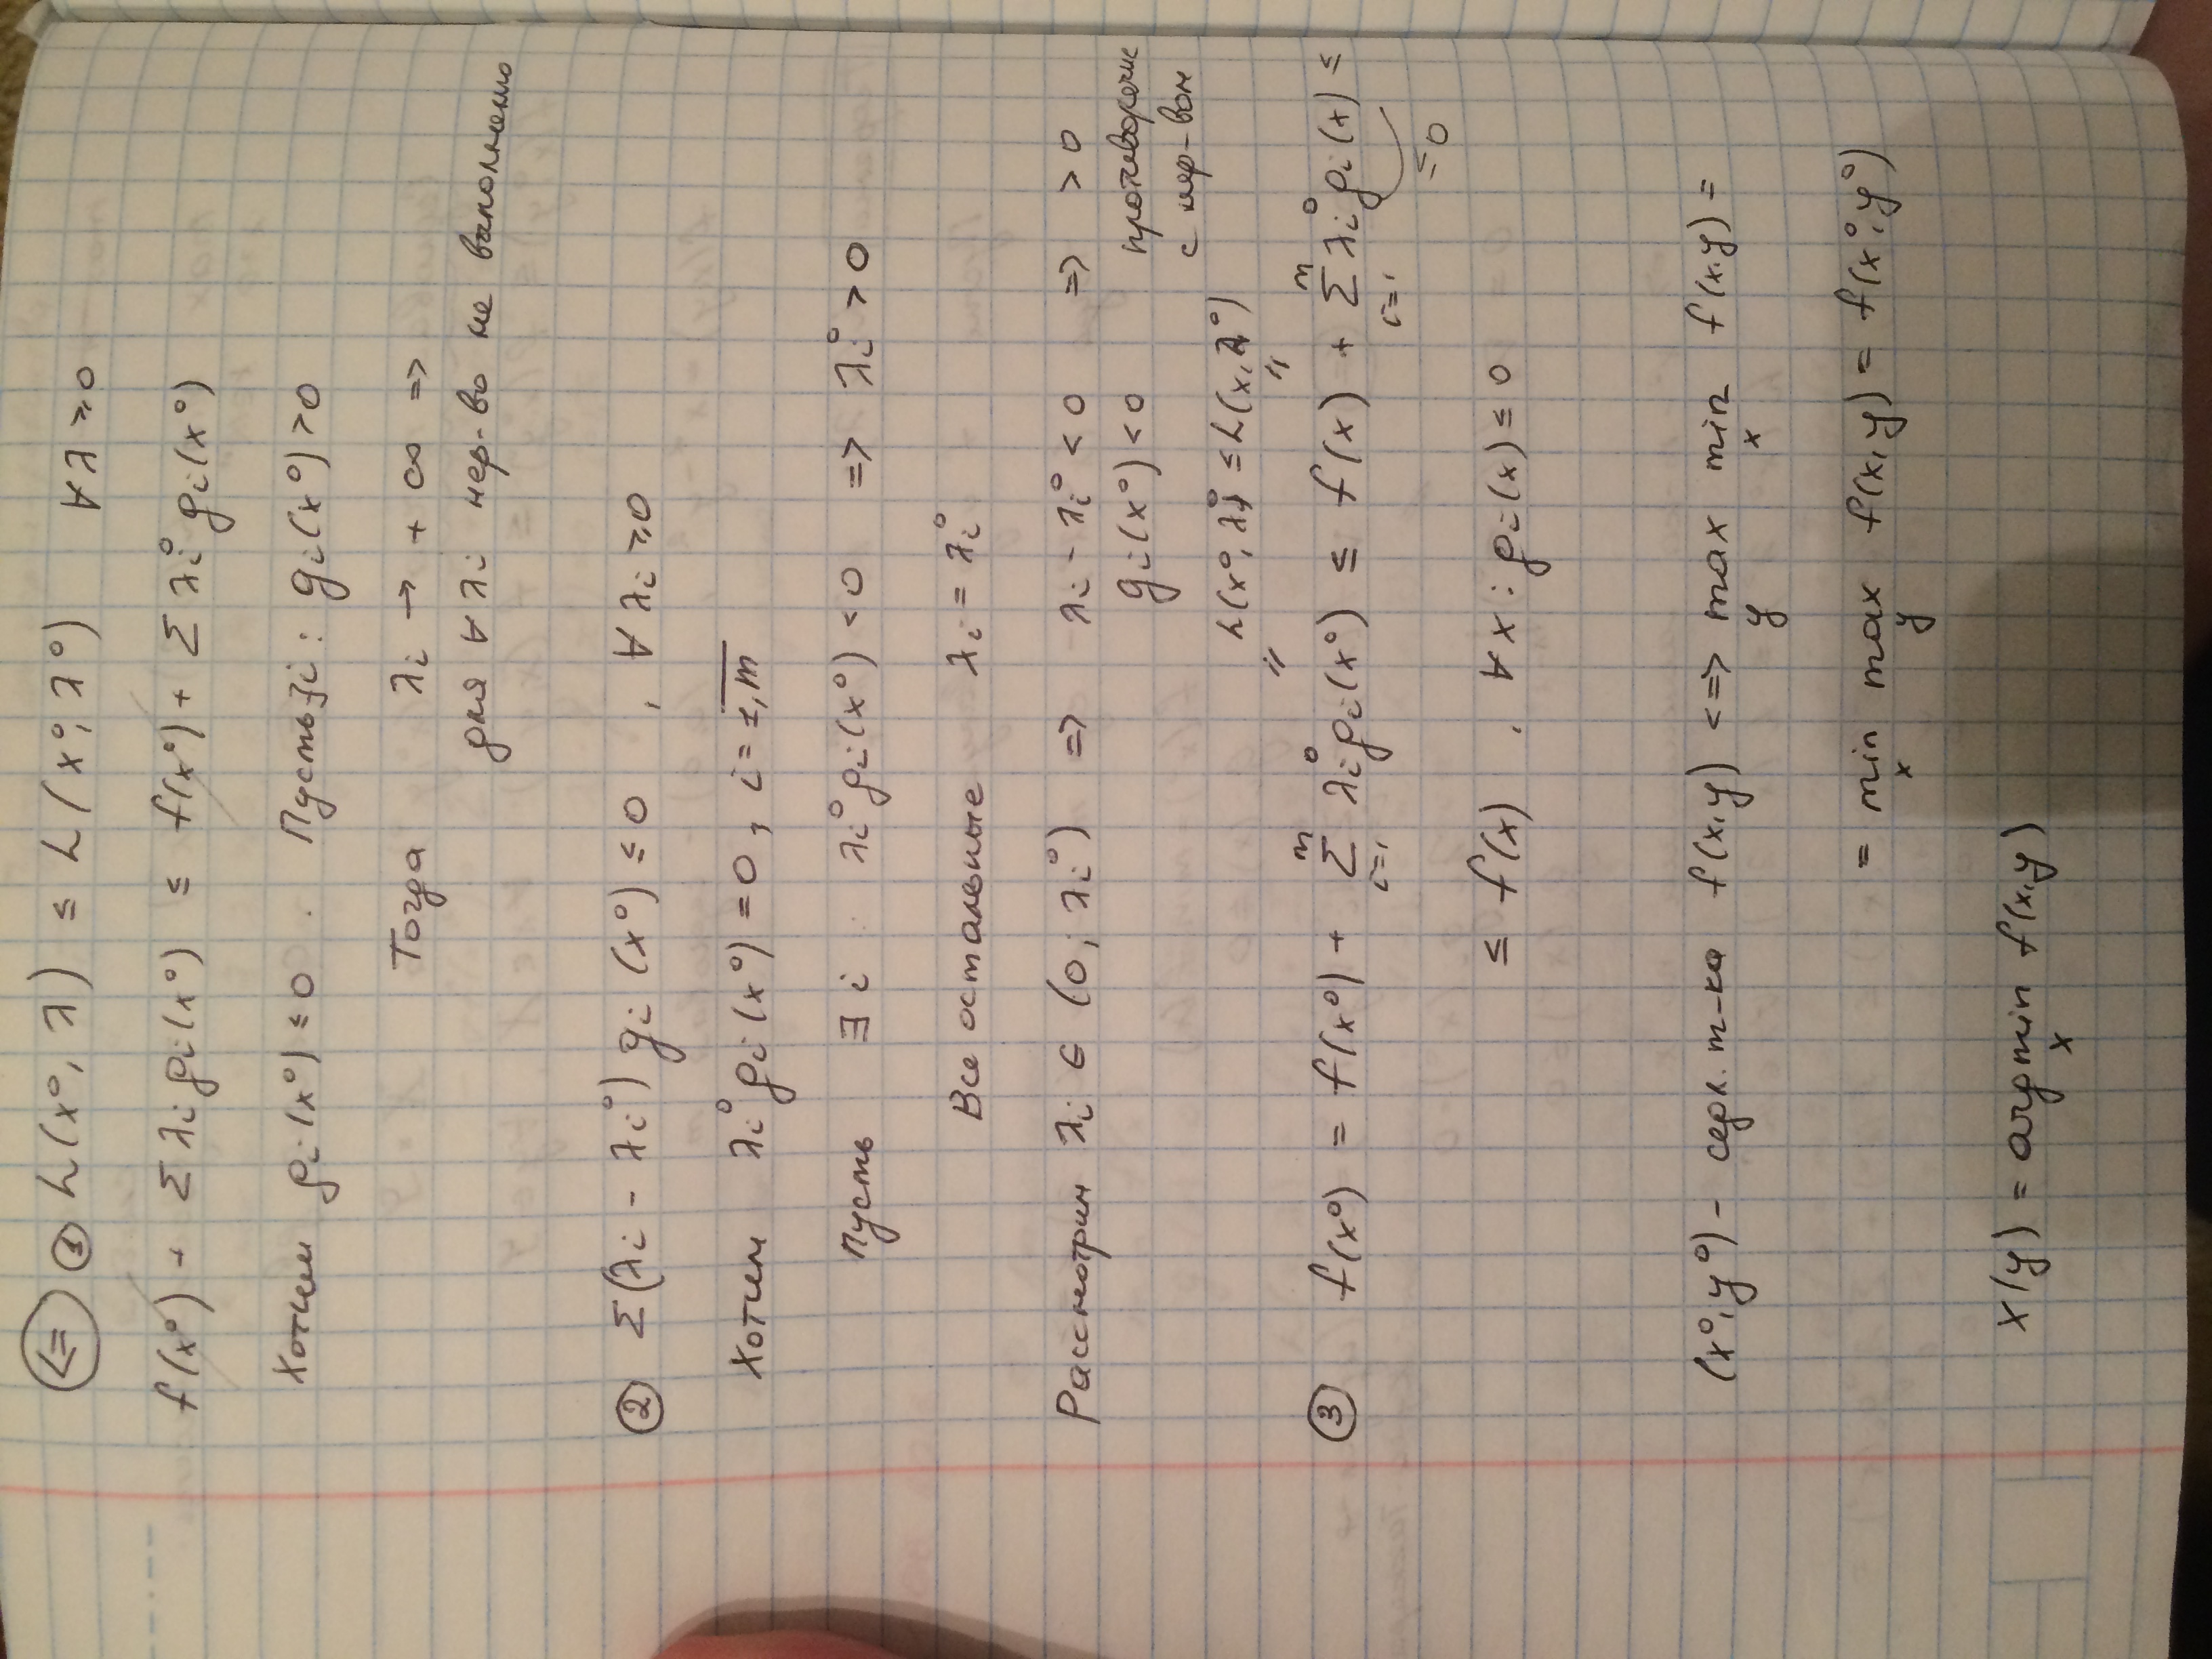 (<=) ① L(x⁰, λ) ≤ L(x⁰, λ⁰) ∀λ ≥ 0
f(x⁰) + Σ λᵢgᵢ(x⁰) ≤ f(x⁰) + Σ λᵢ⁰gᵢ(x⁰)
Хотим gᵢ(x⁰) ≤ 0. Пусть ∃i: gᵢ(x⁰) > 0
Тогда λᵢ → +∞ =>
для ∀λᵢ нер-во не выполнено
② Σ(λᵢ - λᵢ⁰)gᵢ(x⁰) ≤ 0, ∀λᵢ ≥ 0
Хотим λᵢ⁰gᵢ(x⁰) = 0, i = 1,m̅
Пусть ∃i λᵢ⁰gᵢ(x⁰) < 0 => λᵢ⁰ > 0
Все остальные λᵢ = λᵢ⁰
Рассмотрим λᵢ ∈ (0; λᵢ⁰) => λᵢ - λᵢ⁰ < 0 => > 0
gᵢ(x⁰) < 0 противоречие
с нер-вом
L(x⁰, λ⁰) ≤ L(x, λ⁰)
③ f(x⁰) = f(x⁰) + Σᵢ₌₁ᵐ λᵢ⁰gᵢ(x⁰) ≤ f(x) + Σᵢ₌₁ᵐ λᵢ⁰gᵢ(x) ≤
≤ 0
≤ f(x), ∀x: gᵢ(x) ≤ 0
(x⁰, y⁰) - седл. т-ка f(x, y) <=> max_y min_x f(x, y) =
= min_x max_y f(x, y) = f(x⁰, y⁰)
x(y) = argmin_x f(x, y)